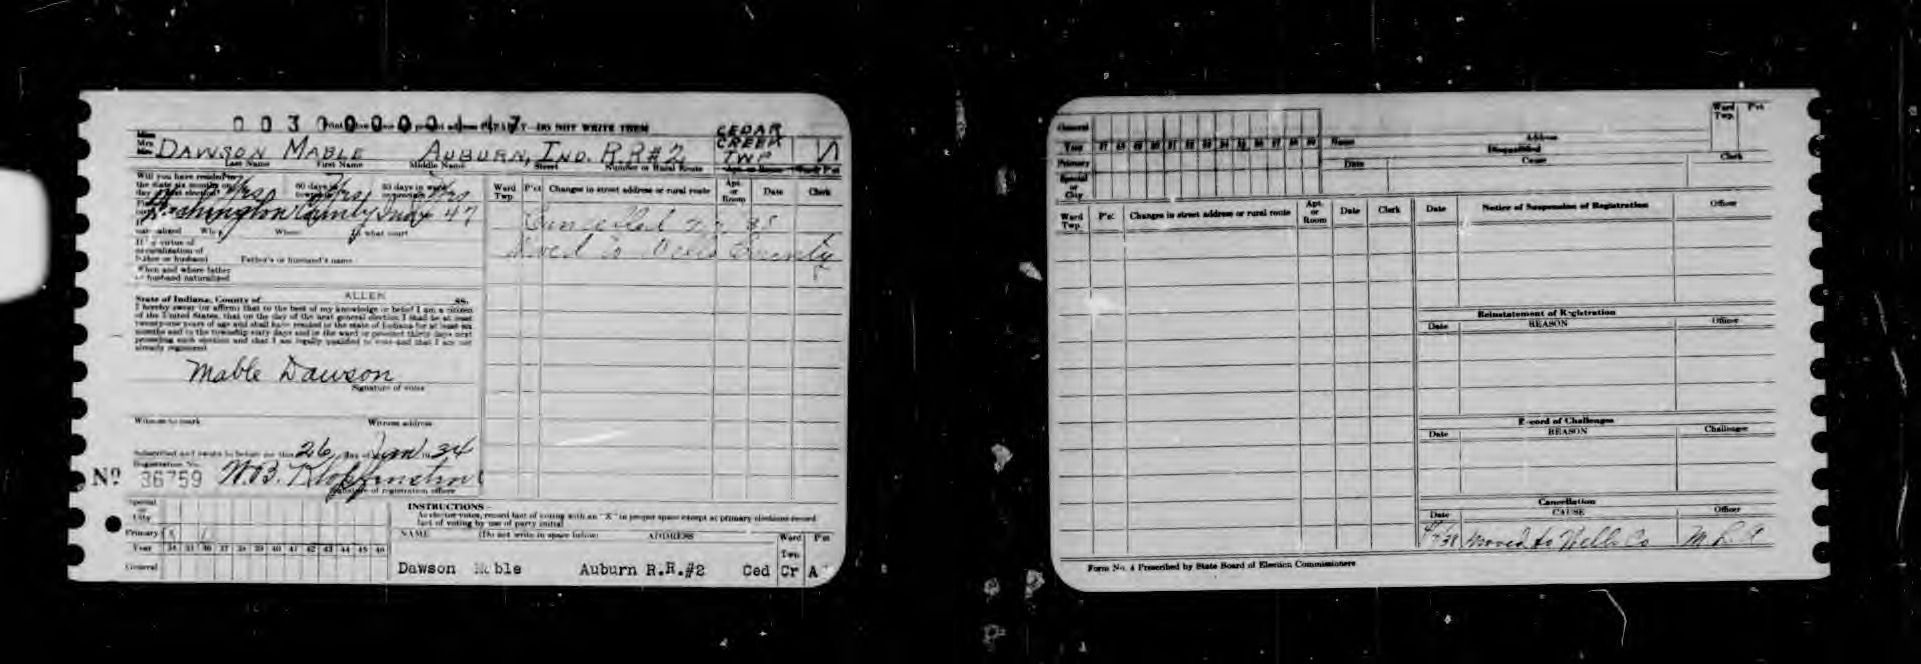 DO NOT WRITE THEM
CEDAR
CREEK
TWP
DAWSON MABLE AUBURN, IND. R R #2
Last Name First Name Middle Name Street Number or Rural Route
Will you have resided in
the state six months on 60 days in 30 days in
Ward Twp. P'ct Changes in street address or rural route Apt. or Room Date Clerk
Washington County Ind 47
Cancelled
Moved to Wells County
Where In what court
If by virtue of
naturalization of
father or husband Father's or husband's name
When and where father
or husband naturalized
State of Indiana, County of ALLEN ss.
I hereby swear (or affirm) that to the best of my knowledge or belief I am a citizen
of the United States, that on the day of the next general election I shall be at least
twenty-one years of age and shall have resided in the state of Indiana for at least six
months and in the township sixty days and in the ward or precinct thirty days next
preceding such election and that I am legally qualified to vote and that I am not
already registered.
Mable Dawson
Signature of voter
Witness to mark Witness address
Subscribed and sworn to before me this 26 day of Jan 1934
Registration No.
No 36759 W.B. Klopfenstein
Signature of registration officer
Special
or
City
Primary
Year 34 35 36 37 38 39 40 41 42 43 44 45 46
General
INSTRUCTIONS
As elector votes, record fact of voting with an "X" in proper space except at primary elections record
fact of voting by use of party initial
NAME (Do not write in space below) ADDRESS Ward Twp. P'ct
Dawson Mable Auburn R.R.#2 Ced Cr A
General
Year Name Address
Primary Disqualified
Special or City Date Cause Clerk
Ward Twp. P'ct
Ward Twp. P'ct Changes in street address or rural route Apt. or Room Date Clerk
Date Notice of Suspension of Registration Officer
Reinstatement of Registration
Date REASON Officer
Record of Challenges
Date REASON Challenger
Cancellation
Date CAUSE Officer
Moved to Wells Co
Form No. 4 Prescribed by State Board of Election Commissioners